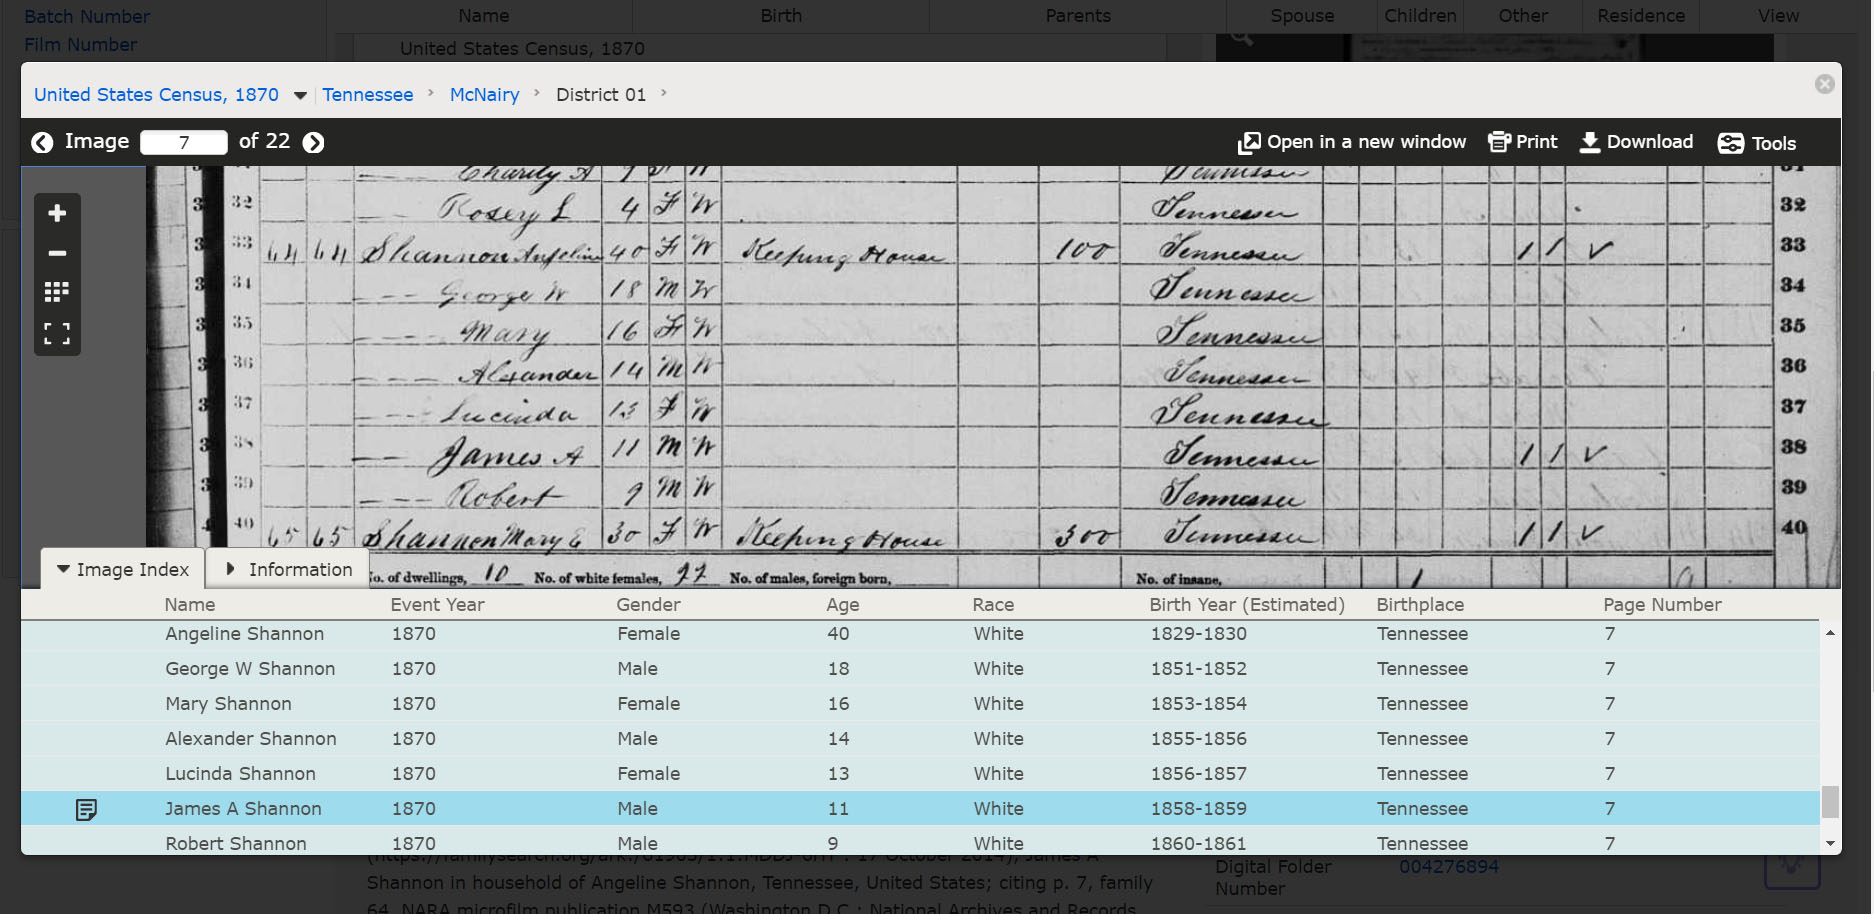 Batch Number
Film Number
Name Birth Parents Spouse Children Other Residence View
United States Census, 1870
United States Census, 1870 Tennessee McNairy District 01
Image 7 of 22 Open in a new window Print Download Tools
Charity A Tennessee 31
32 Rosey L 4 F W Tennessee 32
33 64 64 Shannon Angeline 40 F W Keeping House 100 Tennessee 1 1 33
34 George W 18 M W Tennessee 34
35 Mary 16 F W Tennessee 35
36 Alexander 14 M W Tennessee 36
37 Lucinda 13 F W Tennessee 37
38 James A 11 M W Tennessee 1 1 38
39 Robert 9 M W Tennessee 39
40 65 65 Shannon Mary E 30 F W Keeping House 300 Tennessee 1 1 40
No. of dwellings, 10 No. of white females, No. of males, foreign born, No. of insane,
Image Index Information
Name Event Year Gender Age Race Birth Year (Estimated) Birthplace Page Number
Angeline Shannon 1870 Female 40 White 1829-1830 Tennessee 7
George W Shannon 1870 Male 18 White 1851-1852 Tennessee 7
Mary Shannon 1870 Female 16 White 1853-1854 Tennessee 7
Alexander Shannon 1870 Male 14 White 1855-1856 Tennessee 7
Lucinda Shannon 1870 Female 13 White 1856-1857 Tennessee 7
James A Shannon 1870 Male 11 White 1858-1859 Tennessee 7
Robert Shannon 1870 Male 9 White 1860-1861 Tennessee 7
17 October 2014), James A
Shannon in household of Angeline Shannon, Tennessee, United States; citing p. 7, family
64, NARA microfilm publication M593 (Washington D.C.: National Archives and Records
Digital Folder 004276894
Number